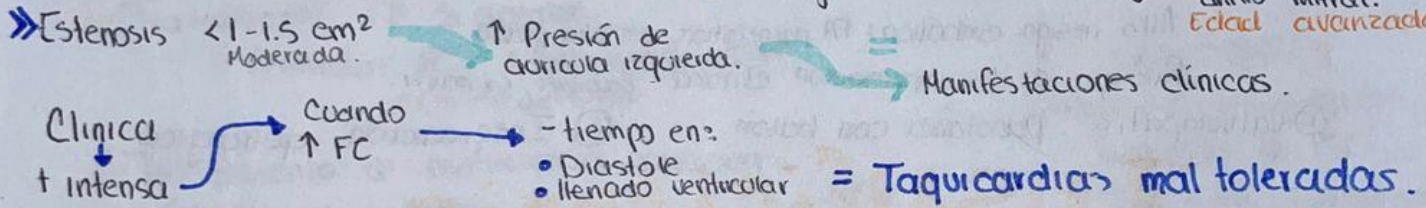 Edad avanzad
»Estenosis <1-1.5 cm²
Moderada.
↑ Presión de
auricula izquierda.
=
Manifestaciones clínicas.
Clinica
+ intensa
Cuando
↑ FC
- tiempo en:
• Diastole
• llenado ventricular
= Taquicardias mal toleradas.